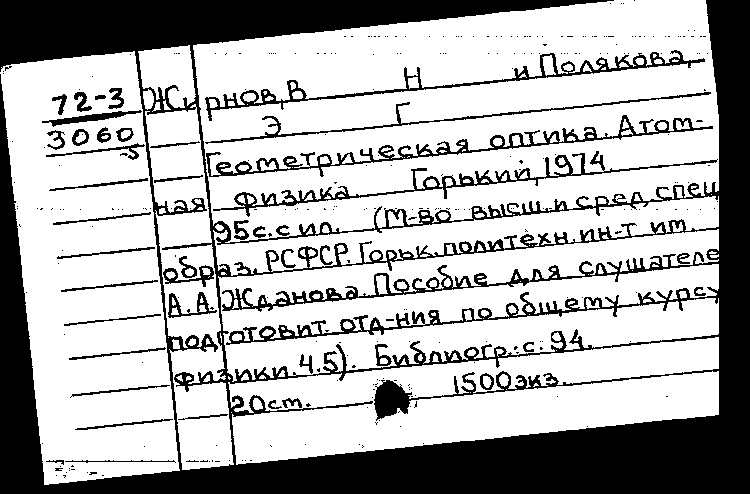 72-3 Жирнов, В Н и Полякова,
3060 Э Г
-5 Геометрическая оптика. Атом-
ная физика. Горький, 1974.
95с. с ил. (М-во высш. и сред. спец
образ. РСФСР. Горьк. политехн. ин-т им.
А. А. Жданова. Пособие для слушателе
подготовит. отд-ния по общему курсу
физики. Ч.5). Библиогр.: с. 94.
20 ст. 1500 экз.